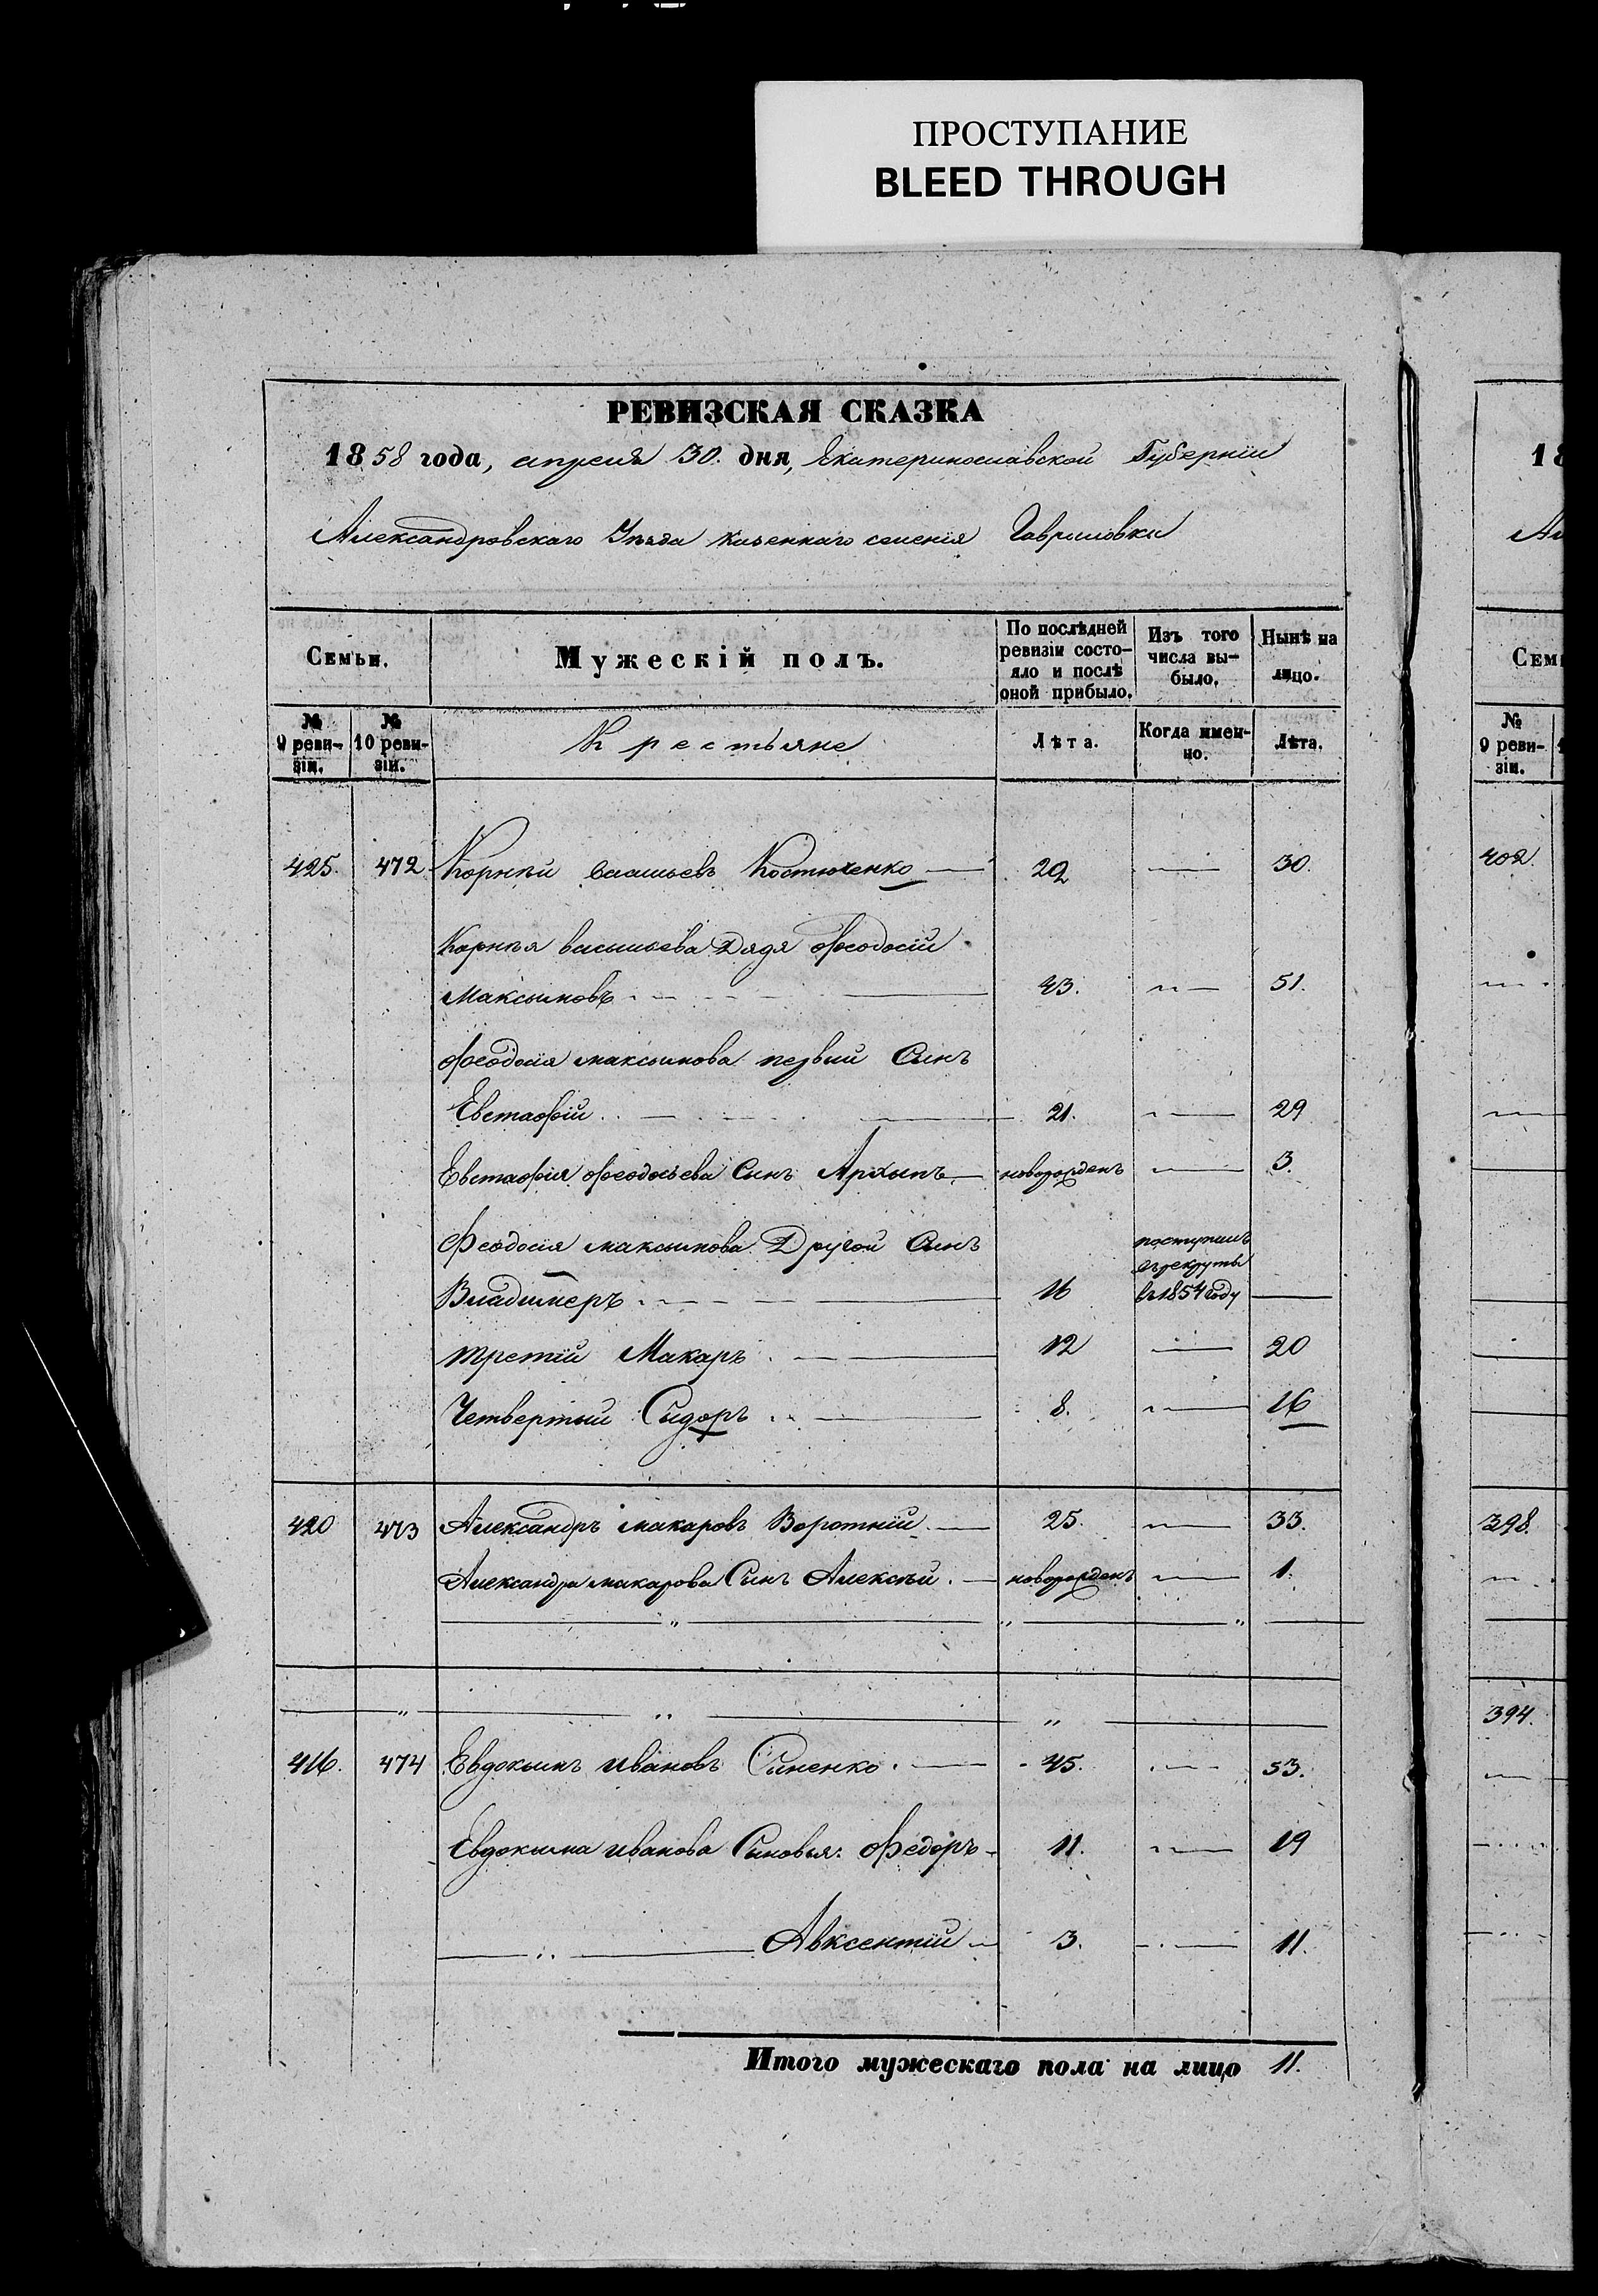 ПРОСТУПАНИЕ
BLEED THROUGH
РЕВИЗСКАЯ СКАЗКА
1858 года, апреля 30. дня, Екатеринославской Губерніи
Александровскаго Уѣзда казеннаго селенія Гавриловки
Семьи. Мужескій полъ. По послѣдней ревизіи состояло и послѣ оной прибыло. Изъ того числа выбыло. Нынѣ на лицо.
№ 9 ревизіи. № 10 ревизіи. Крестьяне Лѣта. Когда именно. Лѣта.
425. 472 Корнѣй Васильевъ Костюченко 22 30.
Корнѣя васильева Дядя Феодосій
Максимовъ 43. 51.
Феодосія максимова первый Сынъ
Евстафій 21. 29
Евстафія феодосьева Сынъ Архыпъ новорожденъ 3.
Феодосія максимова Другой Сынъ
Владимеръ 16 поступилъ въ рекруты въ 1854 году
третій Макаръ 12 20
Четвертый Сидоръ 8. 16
420 473 Александръ макаровъ Воротній 25. 33.
Александра макарова Сынъ Алексѣй новорожденъ 1.
416. 474 Евдокимъ Ивановъ Синенко 45. 53.
Евдокима иванова Сыновья: Федоръ 11. 19
Авксентій 3. 11.
Итого мужескаго пола на лицо 11.
18
Семь
№ 9 ревизіи.
402.
398.
394.